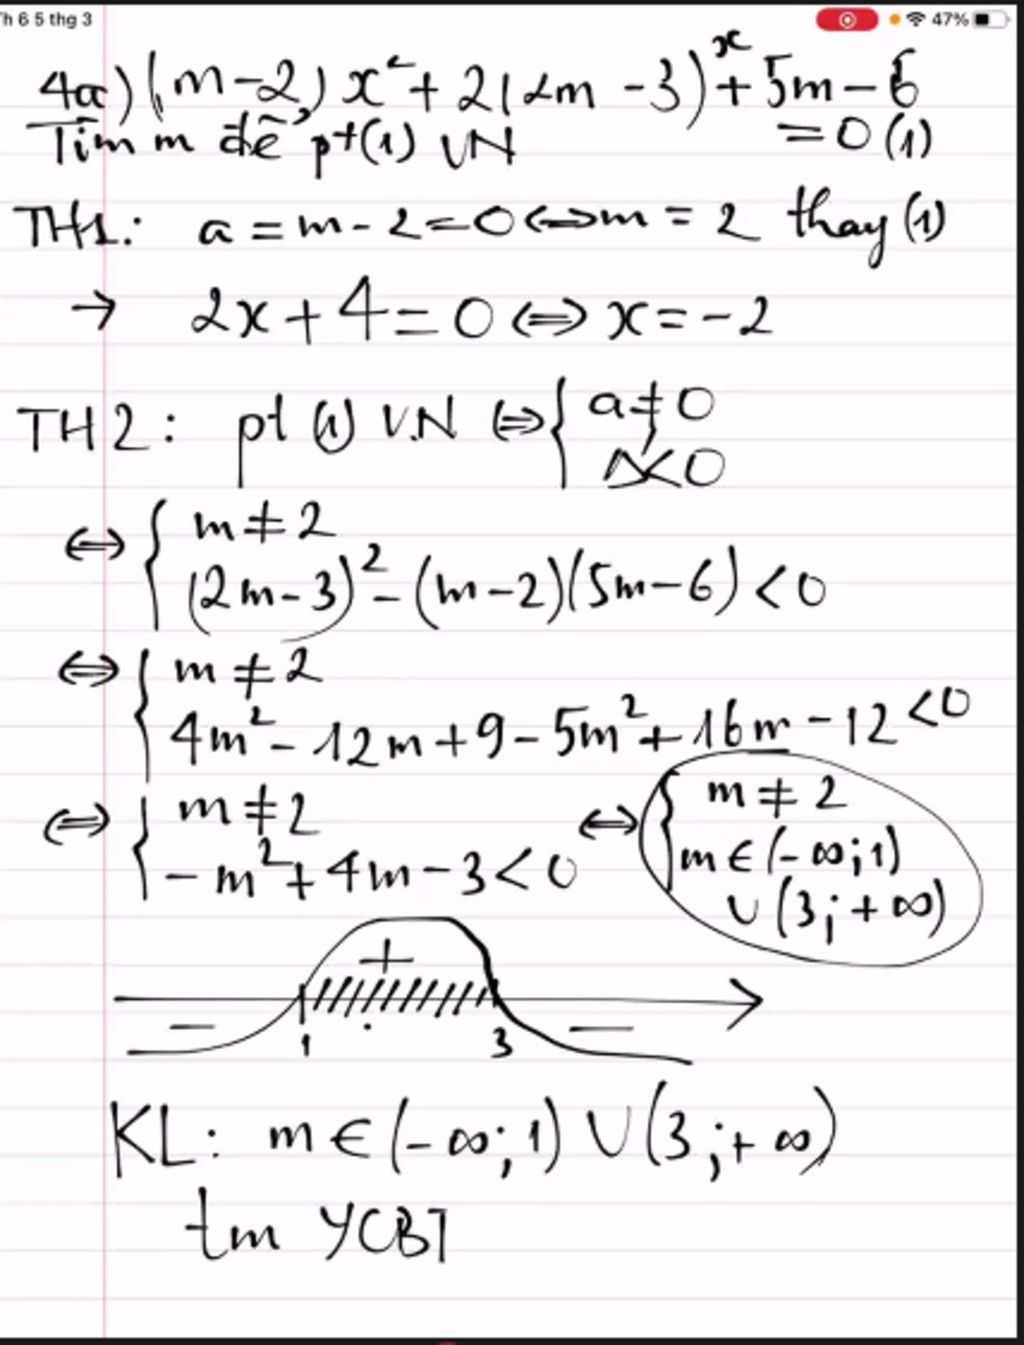 h 6 5 thg 3
47%
4a) (m-2) x² + 2(2m -3)x + 5m - 6
= 0 (1)
Tìm m để pt(1) VN
TH1: a = m - 2 = 0 ⇔ m = 2 thay (1)
→ 2x + 4 = 0 ⇔ x = -2
TH2: pt (1) V.N ⇔ { a ≠ 0
Δ' < 0
⇔ { m ≠ 2
(2m-3)² - (m-2)(5m-6) < 0
⇔ { m ≠ 2
4m² - 12m + 9 - 5m² + 16m - 12 < 0
⇔ { m ≠ 2
- m² + 4m - 3 < 0
⇔ { m ≠ 2
m ∈ (-∞; 1)
∪ (3; +∞)
+
- -
1 3
KL: m ∈ (-∞; 1) ∪ (3; +∞)
tm YCBT